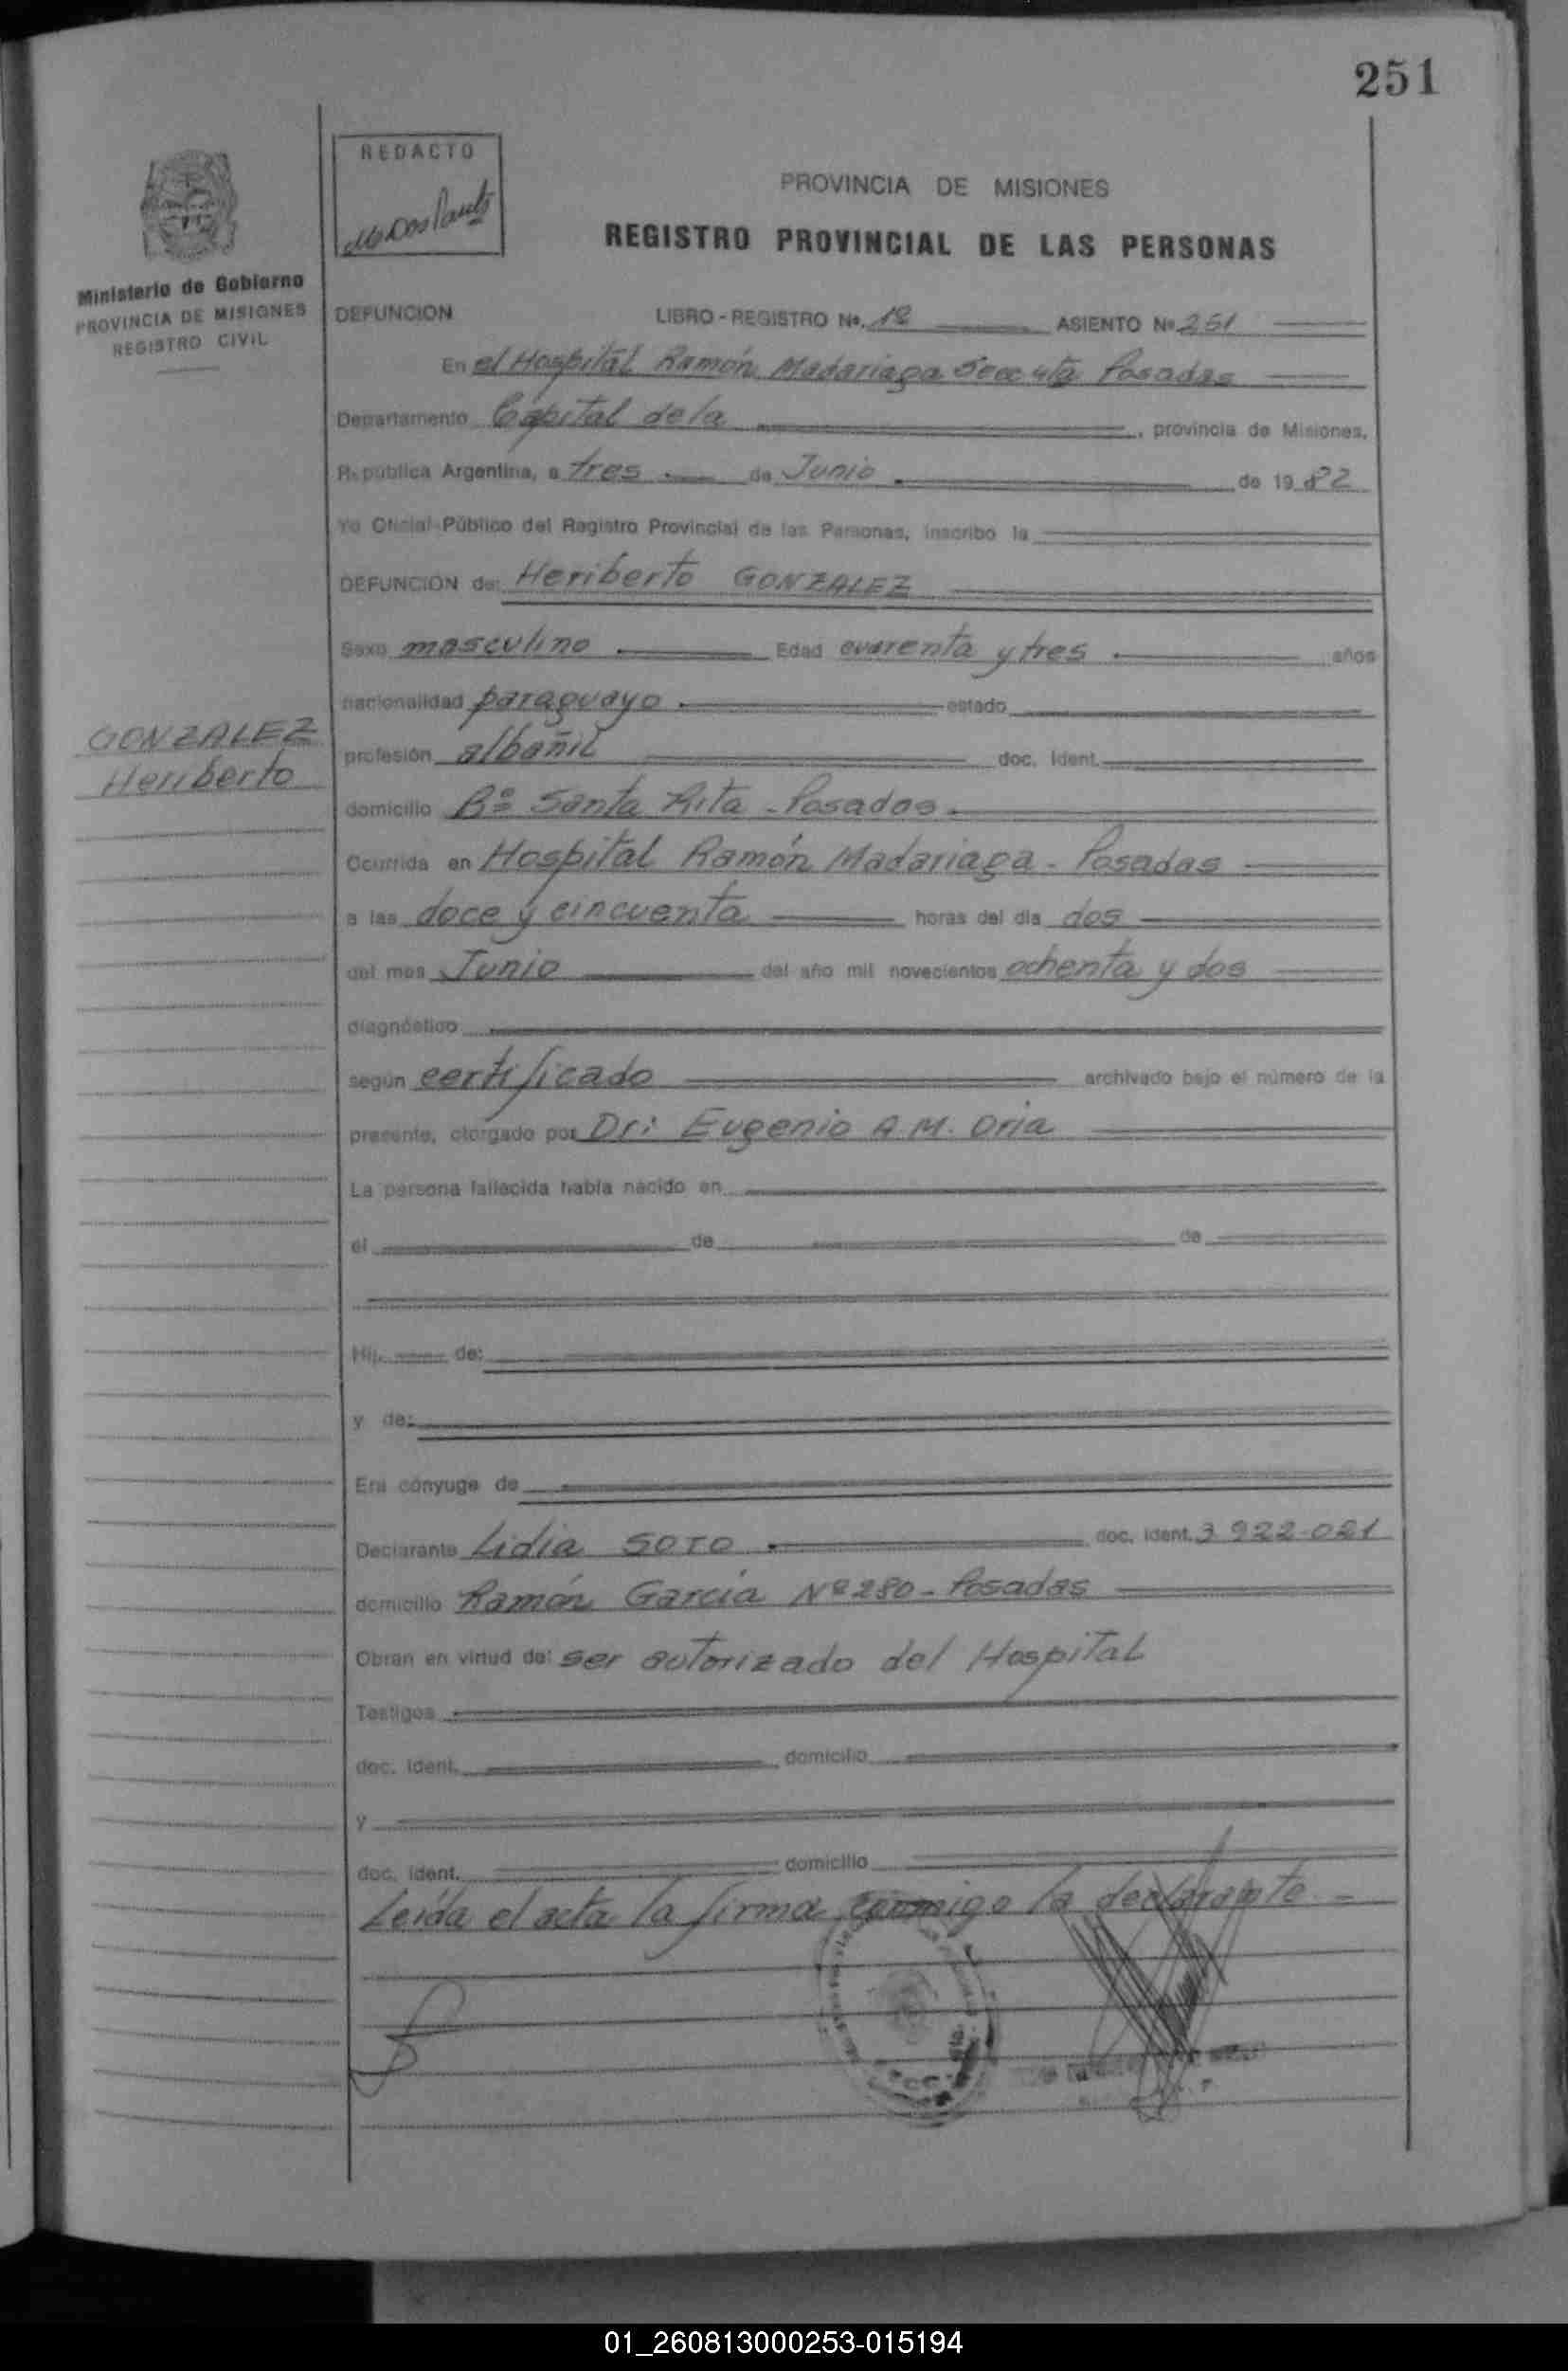 251
REDACTO
PROVINCIA DE MISIONES
REGISTRO PROVINCIAL DE LAS PERSONAS
Ministerio de Gobierno
PROVINCIA DE MISIONES
REGISTRO CIVIL
DEFUNCION LIBRO - REGISTRO No. 12 ASIENTO No 251
En el Hospital Ramón Madariaga Secc 4ta Posadas
Departamento Capital de la , provincia de Misiones,
República Argentina, a tres de Junio de 1982
Yo Oficial Público del Registro Provincial de las Personas, inscribo la
DEFUNCION de: Heriberto GONZALEZ
Sexo masculino Edad cuarenta y tres años
nacionalidad paraguayo estado
GONZALEZ
Heriberto
profesión albañil doc. Ident.
domicilio Bº Santa Rita - Posadas
Ocurrida en Hospital Ramón Madariaga - Posadas
a las doce y cincuenta horas del día dos
del mes Junio del año mil novecientos ochenta y dos
diagnóstico
según certificado archivado bajo el número de la
presente, otorgado por Dr: Eugenio A. M. Oria
La persona fallecida había nacido en
el de de
Hij de:
y de:
Era cónyuge de
Declarante Lidia SOTO doc. Ident. 3 922-021
domicilio Ramón García Nº 280 - Posadas
Obran en virtud de: ser autorizado del Hospital
Testigos
doc. Ident. domicilio
y
doc. Ident. domicilio
Leída el acta la firma conmigo la declarante -
01_260813000253-015194